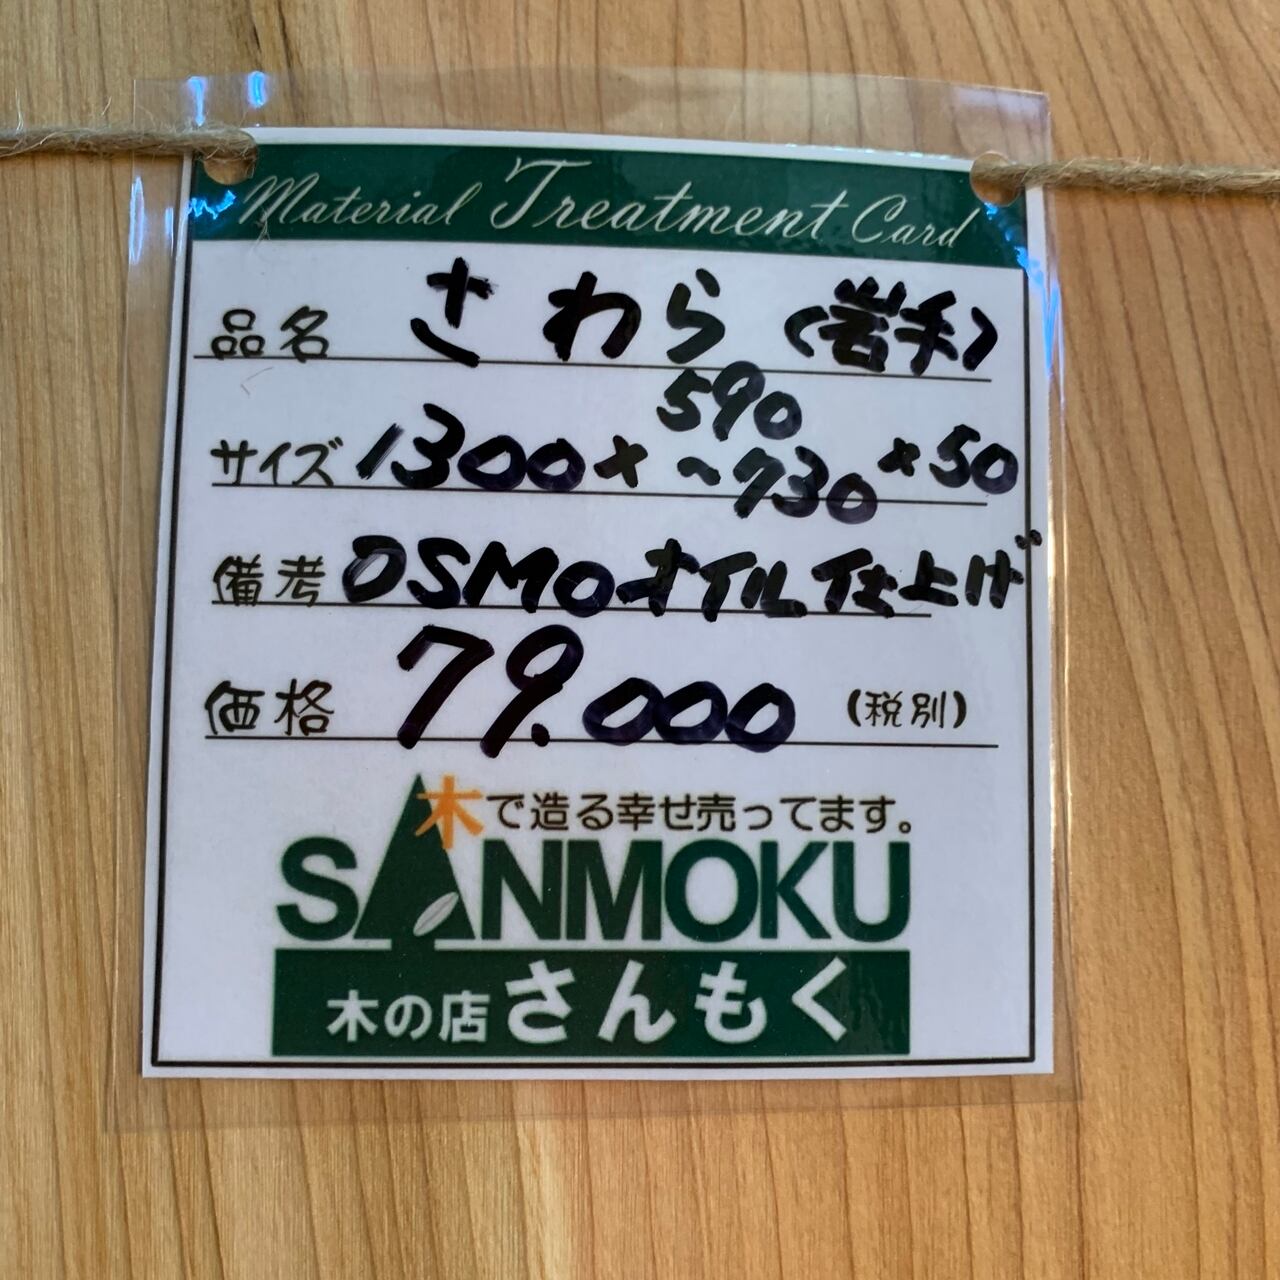 Material Treatment Card
品名 さわら (岩手)
サイズ 1300×590~730×50
備考 OSMOオイル仕上げ
価格 79.000 (税別)
木で造る幸せ売ってます。
SANMOKU
木の店 さんもく